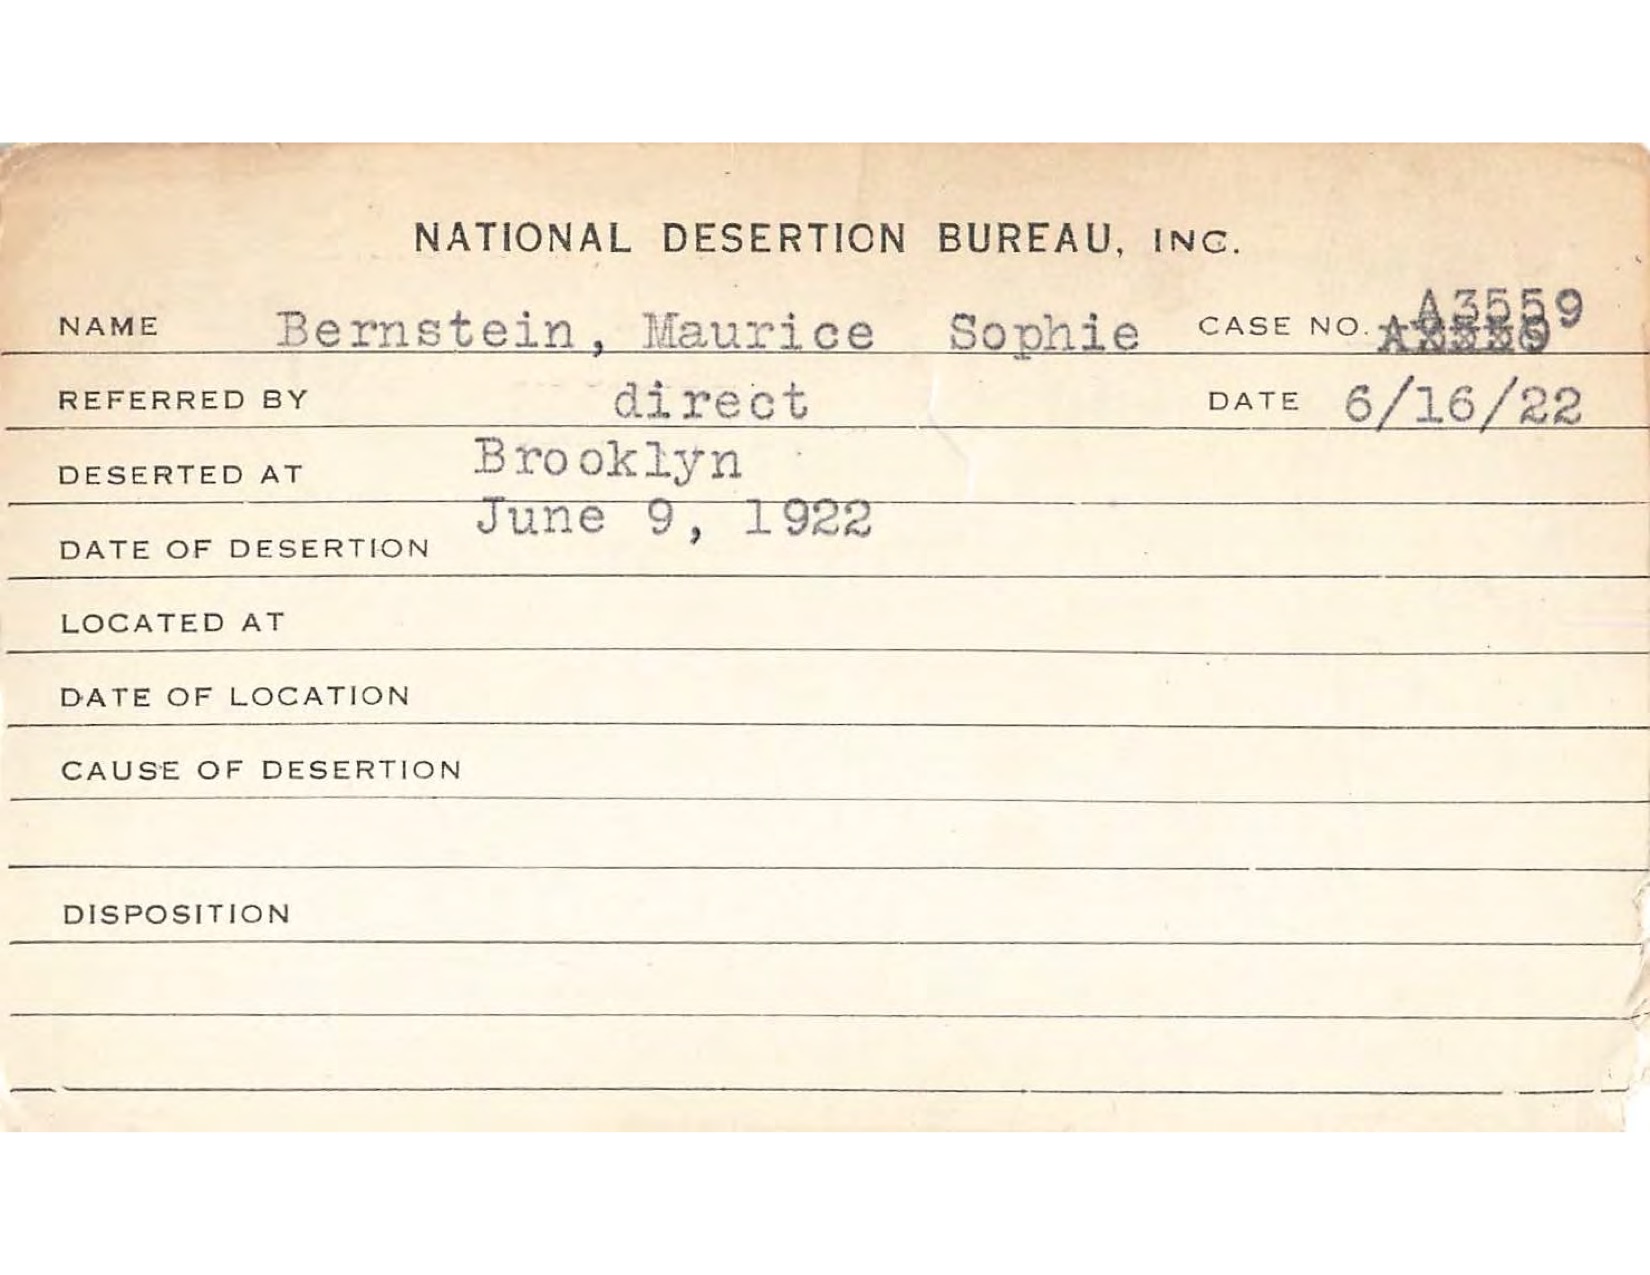 NATIONAL DESERTION BUREAU, INC.
NAME Bernstein, Maurice Sophie CASE NO. A3559
REFERRED BY direct DATE 6/16/22
DESERTED AT Brooklyn
DATE OF DESERTION June 9, 1922
LOCATED AT
DATE OF LOCATION
CAUSE OF DESERTION
DISPOSITION